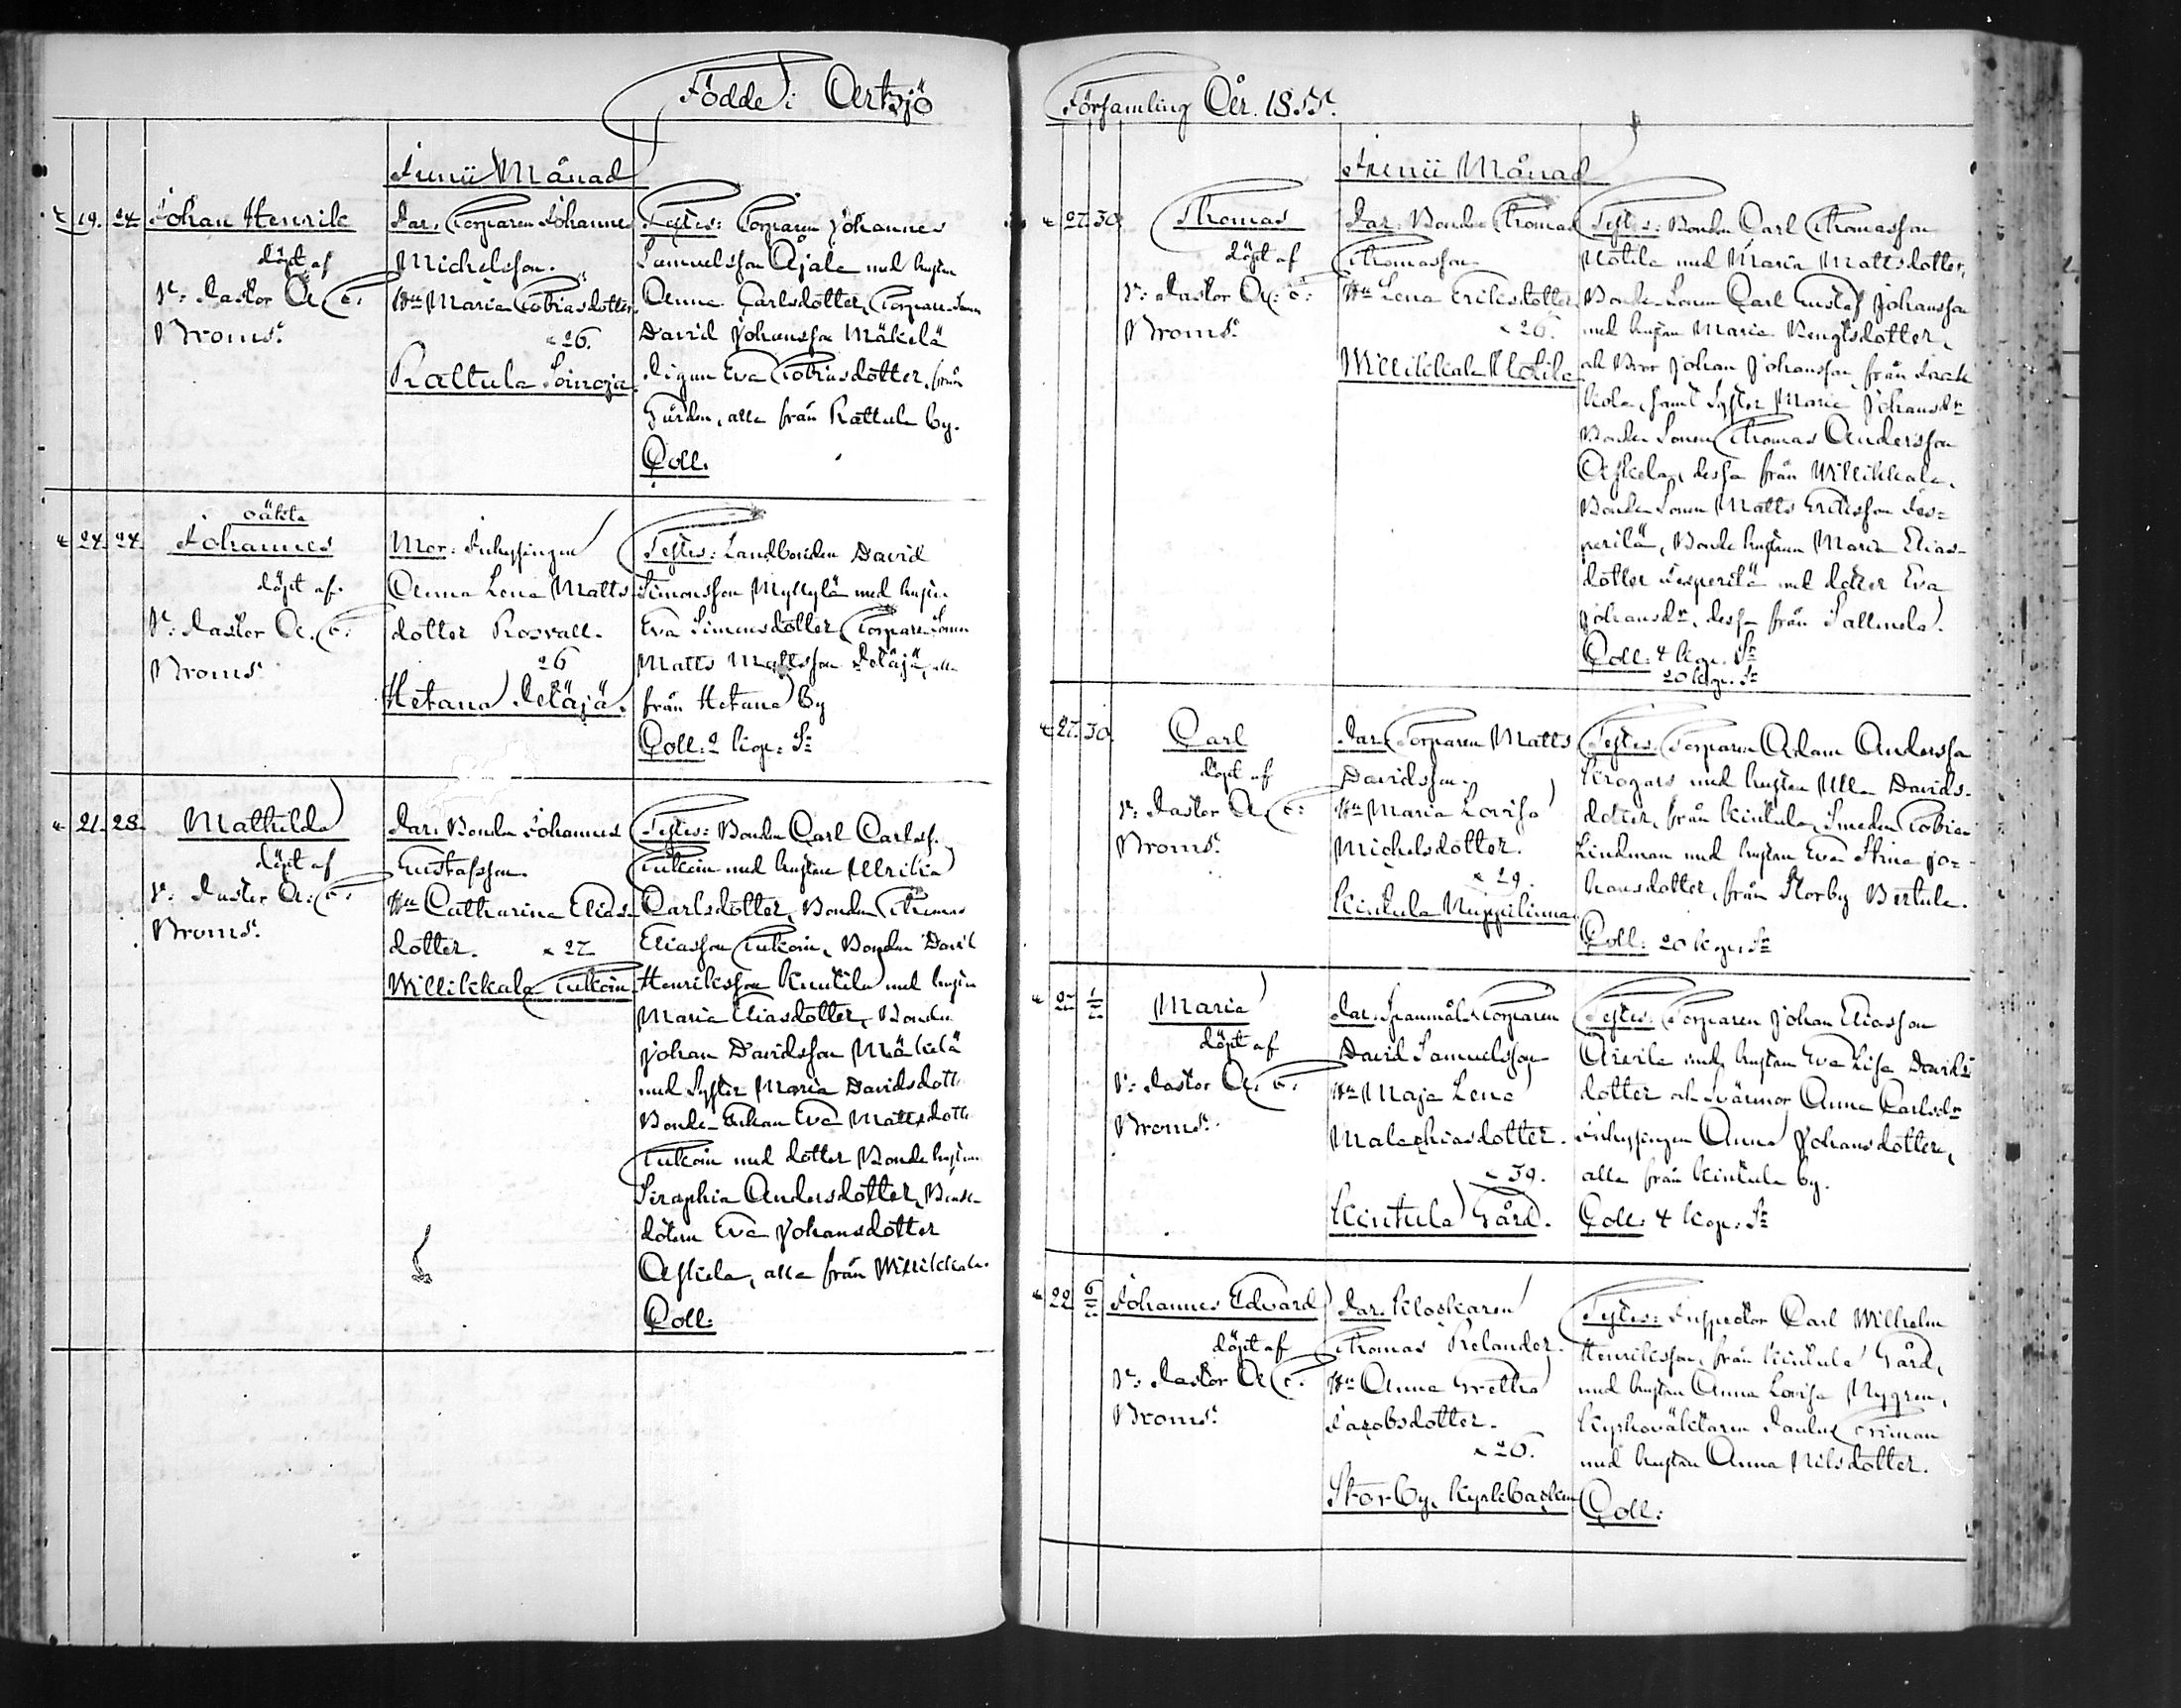 Födde i Artsjö
Junii Månad
19. 24. Johan Henrik
döpt af
V: Pastor A. E:
Broms.
Par. Torparen Johannes
Michelsson.
Hu Maria Tobiasdotter.
26.
Rattula Soinoja.
Testes: Torparen Johannes
Samuelsson Ajala med hustru
Anna Carlsdotter, Torpare Sonen
David Johansson Mäkelä
Pigan Eva Tobiasdotter, från
Gården, alla från Rattula by.
Coll.
24. 24. oäkta
Johannes
döpt af.
V: Pastor A. E:
Broms.
Mor: Inhysingen
Anna Lena Matts-
dotter Rosvall.
26
Hetana Peläjä.
Testes: Landbonden David
Simonsson Myllylä med hustru
Eva Simonsdotter Torpare Sonen
Matts Mattsson Peläjä, alla
från Hetana By
Coll: 2 kop: Sr
21. 28. Mathilda
döpt af
V: Pastor A: E:
Broms.
Par. Bonden Johannes
Gustafsson.
Hu Catharina Elias-
dotter. 27
Willikkala Tukoin.
Testes: Bonden Carl Carlss.
Tukoin med hustru Ulrika
Carlsdotter, Bonden Thomas
Eliasson Tukoin, Bonden David
Henriksson Kuutila med hustru
Maria Eliasdotter, Bonden
Johan Davidsson Mäkelä
med Syster Maria Davidsdott
Bonde-Enkan Eva Mattsdott
Tukoin med dotter Bonde hustrun
Seraphia Andersdotter, Bonde
dotern Eva Johansdotter
Askela, alla från Willikkala.
Coll:
Församling År. 1855.
Junii Månad
27. 30. Thomas
döpt af
V: Pastor A: E:
Broms.
Par. Bonden Thomas
Thomasson
Hu Lena Eriksdotter
26.
Willikkala Klotila
Testes: Bonden Carl Thomasson
Klotila med Maria Mattsdotter,
Bonde Sonen Carl Gustaf Johansson
med hustru Maria Bengtsdotter,
och Bror Johan Johansson från Jack
kola, samt Syster Maria Johansdr
Bonde Sonen Thomas Andersson
Askela, dessa från Willikkala.
Bonde Sonen Matts Eriksson Jes-
perilä, Bonde hustrun Maria Elias-
dotter Jesperilä med dotter Eva
Johansdr, dessa från Salmela.
Coll: 4 kop. Sr
20 kop. Sr
27. 30. Carl
döpt af
V: Pastor A. E:
Broms.
Par. Torparen Matts
Davidsson.
Hu Maria Lovisa
Michelsdotter.
29.
Kintula Nuppilinna
Testes: Torparen Adam Andersson
Krogars med hustru Ulla Davids-
dotter, från Kintula, Smeden Tobias
Lindman med hustru Eva Stina Jo-
hansdotter, från Storby Bertula.
Coll: 20 kop. Sr
27 1/7 Maria
döpt af
V: Pastor A. E:
Broms.
Par. Spanmåls Torparen
David Samuelsson
Hu Maja Lena
Malachiasdotter.
39.
Kintula Gård.
Testes: Torparen Johan Eliasson
Airila med hustru Eva Lisa Davids
dotter och Svärmor Anna Carlsdr
Inhysingen Anna Johansdotter,
alla från Kintula by.
Coll: 4 kop: Sr
22 6/7 Johannes Edvard
döpt af
V: Pastor A. E:
Broms.
Par. Klockaren
Thomas Relander.
Hu Anna Gretha
Jacobsdotter.
26.
Storby, Kyrkbacken
Testes: Inspector Carl Wilhelm
Henriksson, från Kintula Gård,
med hustru Anna Lovisa Nygren,
Kyrkoväktaren Paulus Friman
med hustru Anna Nilsdotter.
Coll: